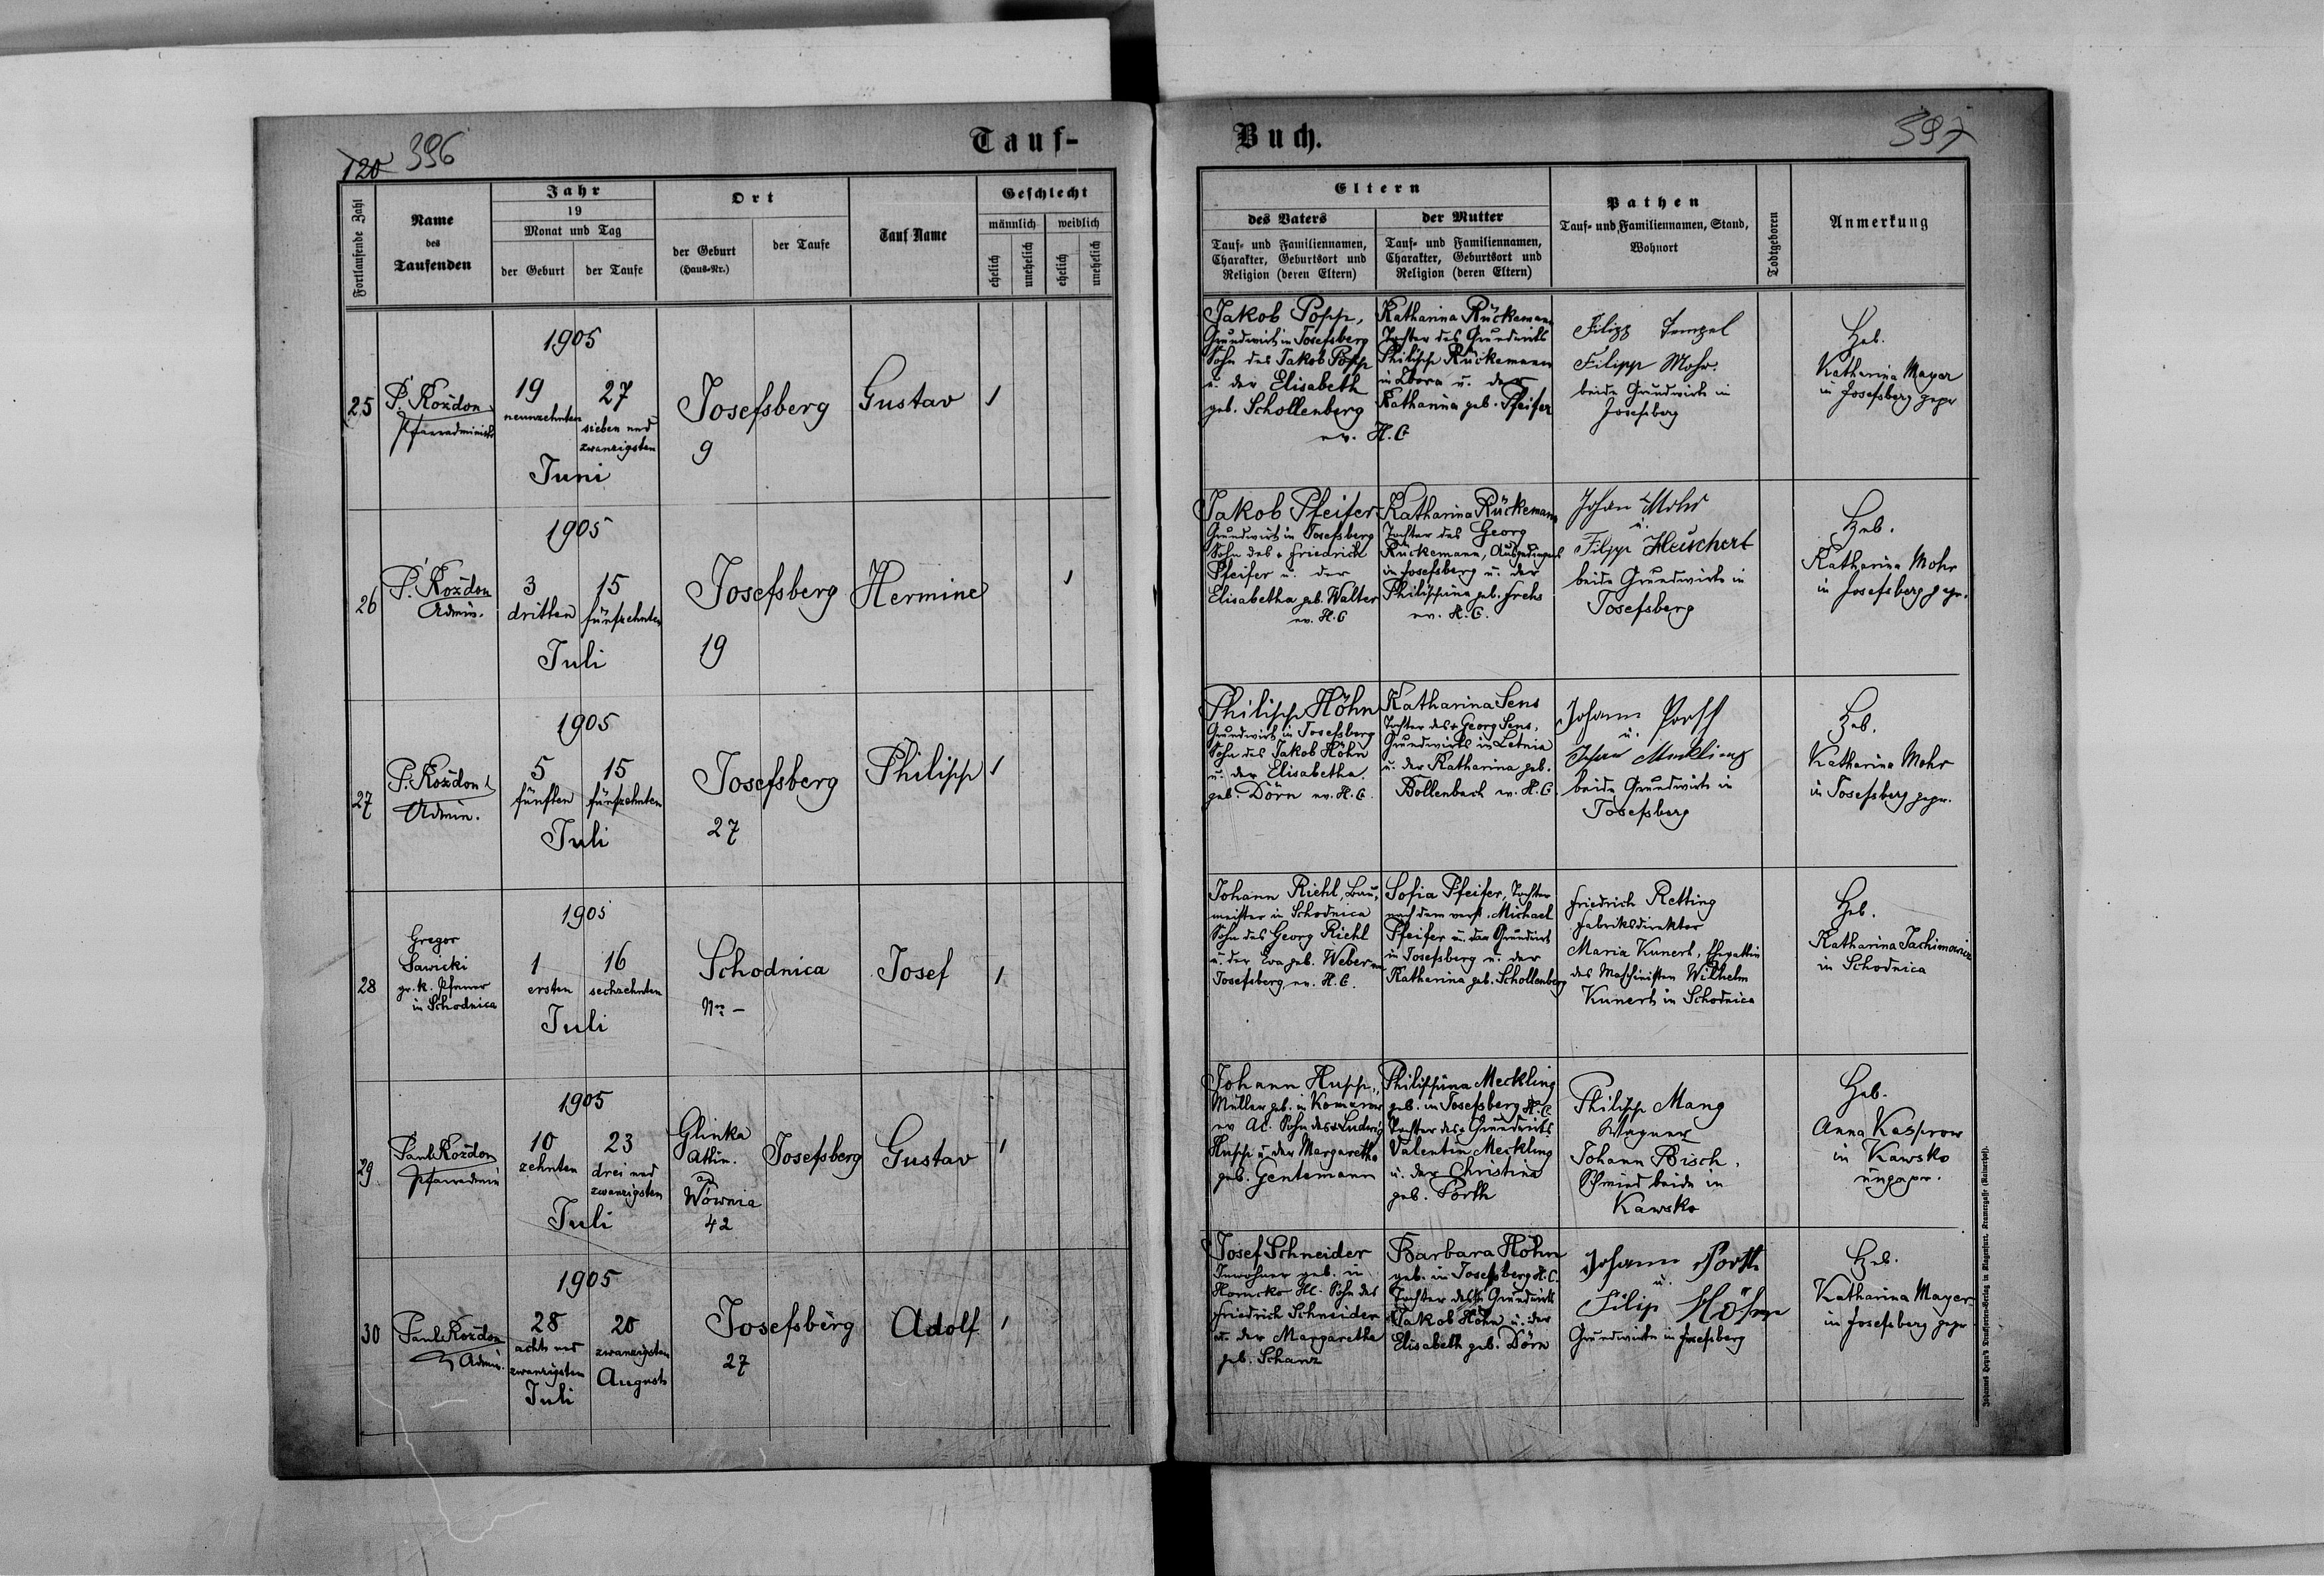 120 396
Tauf-
Fortlaufende Zahl
Name
des
Taufenden
Jahr
19
Monat und Tag
der Geburt
der Taufe
Ort
der Geburt
(Haus-Nr.)
der Taufe
Tauf Name
Geschlecht
männlich
weiblich
ehelich
unehelich
ehelich
unehelich
25
P. Kozdon
1905
19
neunzehnten
27
sieben und
zwanzigsten
Juni
Josefsberg
9
Gustav
1
26
P. Kozdon
Admin.
1905
3
dritten
15
fünfzehnten
Juli
Josefsberg
19
Hermine
1
27
P. Kozdon
Admin.
1905
5
fünften
15
fünfzehnten
Juli
Josefsberg
27
Philipp
1
28
Gregor
Sawicki
gr. k. Pfarrer
in Schodnica
1905
1
ersten
16
sechzehnten
Juli
Schodnica
Nr. –
Josef
1
29
Paul Kozdon
1905
10
zehnten
23
drei und
zwanzigsten
Juli
Glinka
ad
Wównia
42
Josefsberg
Gustav
1
30
Paul Kozdon
Admin.
1905
28
acht und
zwanzigsten
Juli
20
zwanzigsten
August
Josefsberg
27
Adolf
1
Buch.
597
Eltern
des Vaters
Tauf- und Familiennamen,
Charakter, Geburtsort und
Religion (deren Eltern)
der Mutter
Tauf- und Familiennamen,
Charakter, Geburtsort und
Religion (deren Eltern)
Pathen
Tauf- und Familiennamen, Stand,
Wohnort
Todtgeboren
Anmerkung
Jakob Popp,
Grundwirt in Josefsberg
Sohn des Jakob Popp
u. der Elisabeth
geb. Schollenberg
Katharina Rückemann
Tochter des Grundwirts
Philipp Rückemann
in u. der
Katharina geb. Pfeifer
ev. H. C
Filipp
Filipp Mohr
beide Grundwirte in
Josefsberg
Heb.
Katharina Mayer
in Josefsberg gepr
Jakob Pfeifer
Grundwirt in Josefsberg
Sohn des + Friedrich
Pfeifer u. der
Elisabetha geb. Walter
ev. H. C
Katharina Rückemann
Tochter des Georg
Rückemann, Ausgedinger
in Josefsberg u. der
Philippina geb. Frehs
ev. H. C.
Johan Mohr
u.
Filipp Heuchert
beide Grundwirte in
Josefsberg
Heb.
Katharina Mohr
in Josefsberg gepr.
Philipp Höhn
Grundwirt in Josefsberg
Sohn des Jakob Höhn
u. der Elisabetha
geb. Dörn ev. H. C.
Katharina Sens
Tochter des + Georg Sens,
Grundwirts in Letnia
u. der Katharina geb.
Bollenbach ev. H. C.
Johann Porth
u.
Johan Meckling
beide Grundwirte in
Josefsberg
Heb.
Katharina Mohr
in Josefsberg gepr.
Johann Riehl, Bau-
meister in Schodnica
Sohn des Georg Riehl
u. der Eva geb. Weber
Josefsberg ev. H. C.
Sofia Pfeifer, Tochter
nach dem verst. Michael
Pfeifer Grundwirt
in Josefsberg u. der
Katharina geb. Schollenberg
Friedrich Retting
Fabriksdirektor
Maria Kunert, Ehegattin
des Maschinisten Wilhelm
Kunert in Schodnica
Heb.
Katharina Jachimowicz
in Schodnica
Johann Hupp,
Müller geb. in Komarow
ev. AC. Sohn des + Ludwig
Hupp u. der Margaretha
geb. Gentemann
Philippina Meckling
geb. in Josefsberg H. C.
Tochter des + Grundwirts
Valentin Meckling
u. der Christina
geb. Porth
Philipp Mang
Wagner
Johann Bisch,
Schmied beide in
Kawsko
Heb.
Anna Kasprow
in Kawsko
ungepr.
Josef Schneider
Inwohner geb. in
HC. Sohn des
Friedrich Schneider
u. der Margaretha
geb. Schanz
Barbara Höhn
geb. in Josefsberg H. C.
Tochter des Grundwirts
Jakob Höhn u. der
Elisabeth geb. Dörn
Johann Porth
u.
Filip Höhn
Grundwirte in Josefsberg
Heb.
Katharina Mayer
in Josefsberg gepr
Johannes Heyn's Drucksorten-Verlag in Klagenfurt, Kramergasse (Rainerhof).